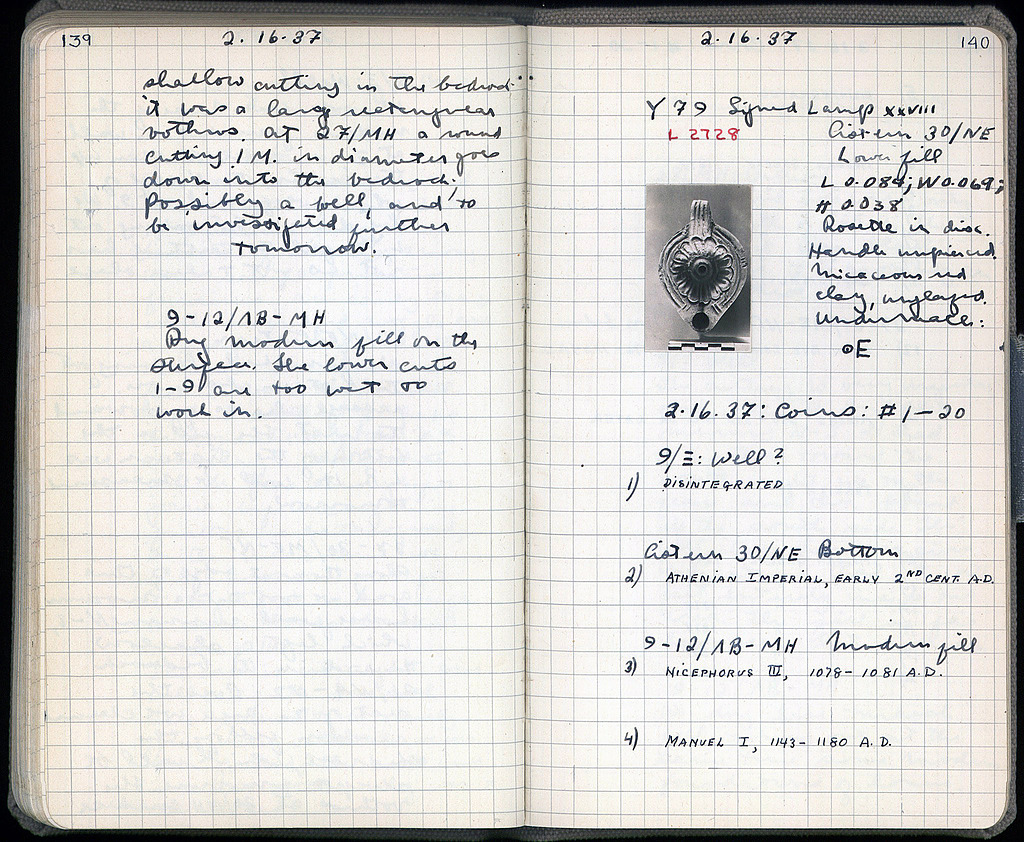 139
2.16.37
shallow cutting in the bedrock
it was a large rectangular
bothros. At 27/MH a round
cutting 1 M. in diameter goes
down into the bedrock.
Possibly a well, and to
be investigated further
tomorrow.
9-12/ΛB-MH
Dug modern fill on the
surface. The lower cuts
1-9 are too wet to
work in.
2.16.37
140
Y 79 Signed Lamp XXVIII
L 2728
Cistern 30/NE
Lower fill
L 0.084; W 0.069;
H 0.038
Rosette in disc.
Handle unpierced.
Micaceous red
clay, unglazed.
Underneath:
ΘE
2.16.37: Coins: #1-20
9/Ξ: Well?
1) DISINTEGRATED
Cistern 30/NE Bottom
2) ATHENIAN IMPERIAL, EARLY 2ND CENT. A.D.
9-12/ΛB-MH Modern fill
3) NICEPHORUS III, 1078-1081 A.D.
4) MANUEL I, 1143-1180 A.D.